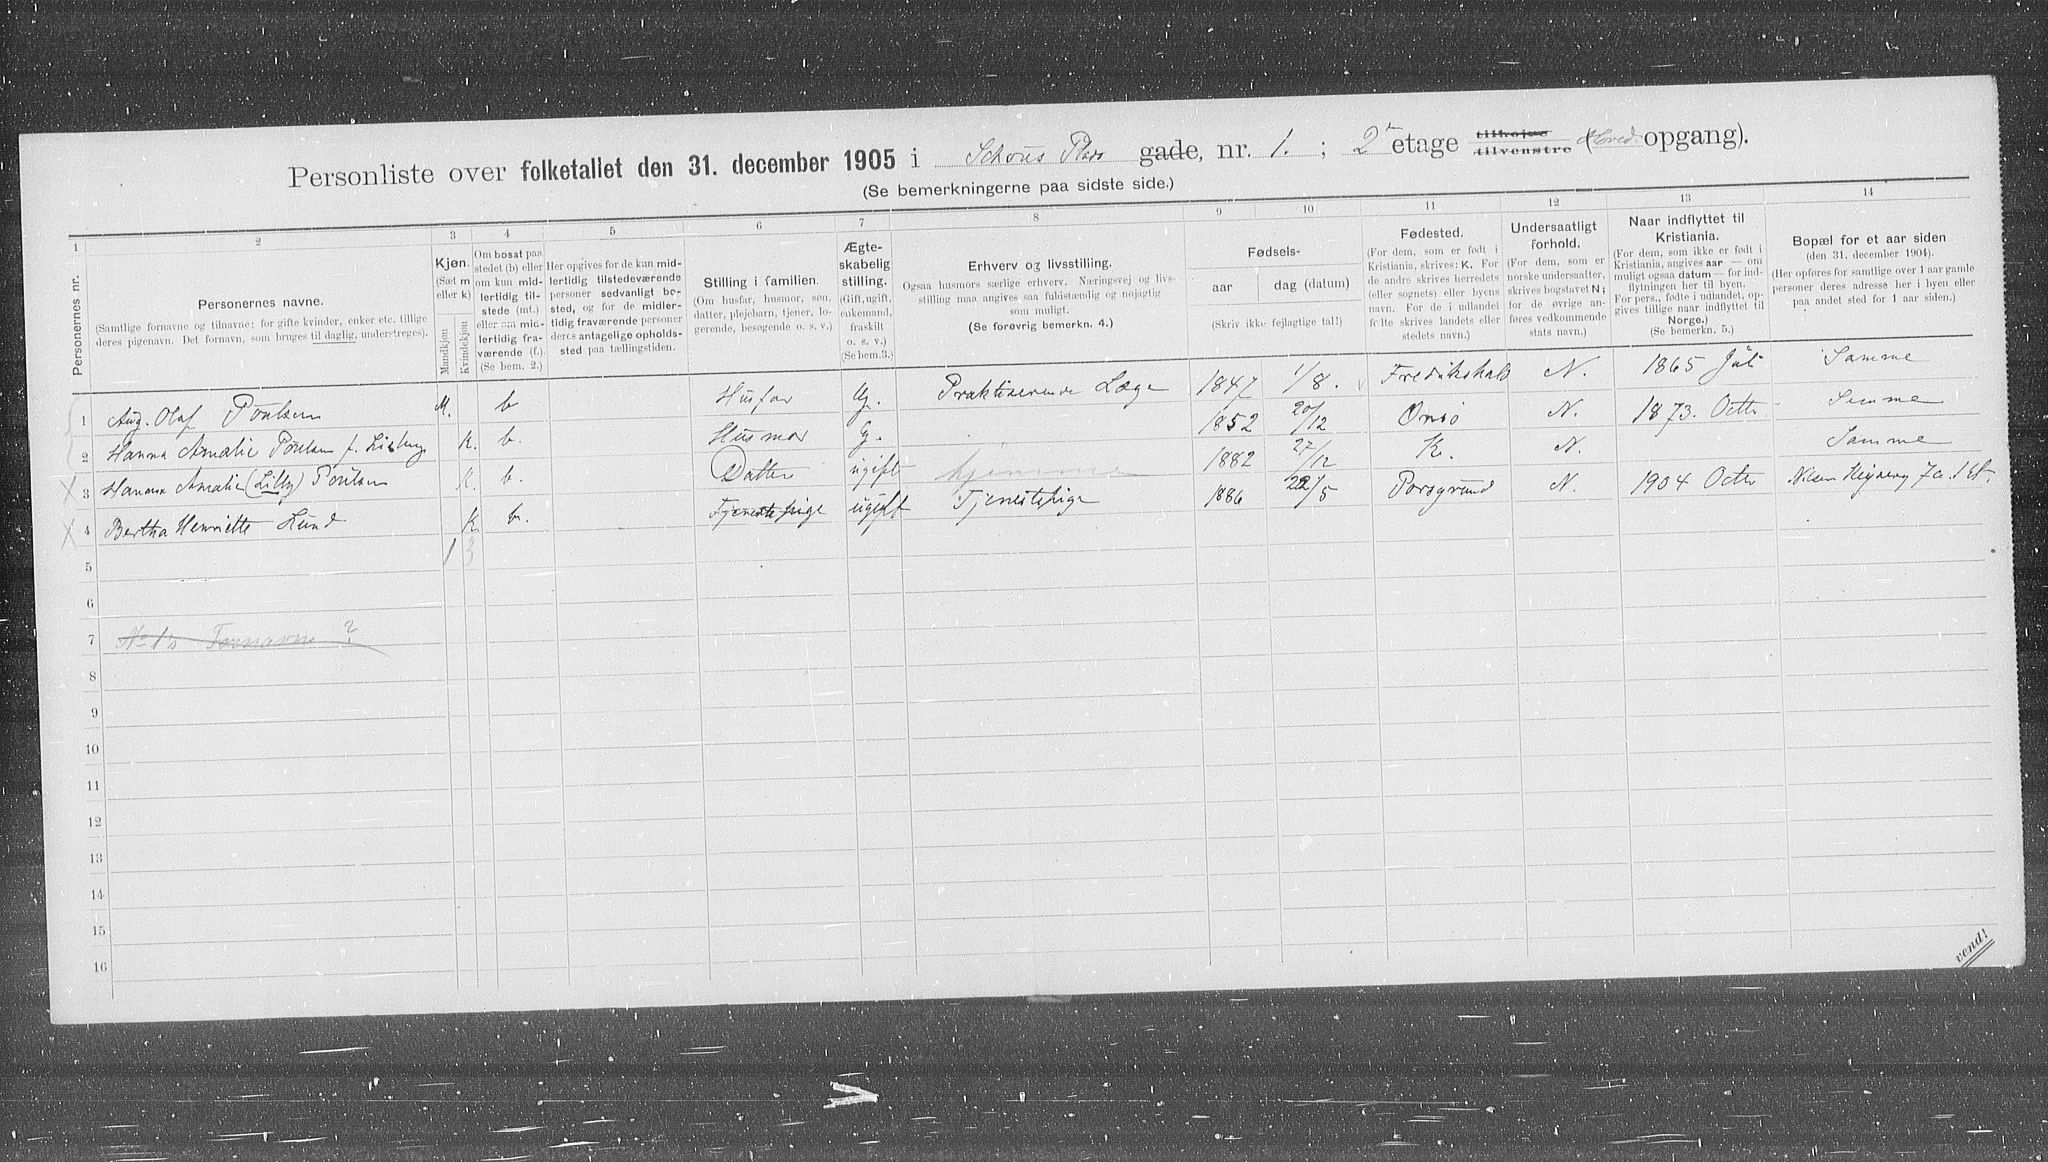 Personliste over folketallet den 31. december 1905 i Schous Plads gade, nr. 1. ; 2 etage tilhøjre tilvenstre (Hoved opgang).
(Se bemerkningerne paa sidste side.)
1 2 3 4 5 6 7 8 9 10 11 12 13 14
Personernes nr.
Personernes navne.
(Samtlige fornavne og tilnavne; for gifte kvinder, enker etc. tillige
deres pigenavn. Det fornavn, som bruges til daglig, understreges).
Kjøn.
(Sæt m
eller k)
Mandkjøn
Kvindekjøn
Om bosat paa
stedet (b) eller
om kun mid-
lertidig til-
stede (mt.)
eller om mid-
lertidig fra-
værende (f.)
(Se bem. 2.)
Her opgives for de kun mid-
lertidig tilstedeværende
personer sedvanlig bo-
sted, og for de midler-
tidig fraværende personer
deres antagelige opholds-
sted paa tællingstiden.
Stilling i familien.
(Om husfar, husmor, søn,
datter, plejebarn, tjener, lo-
gerende, besøgende o. s. v.)
Ægte-
skabelig
stilling.
(Gift, ugift,
enkemand,
fraskilt
o. s. v.)
(Se bem.3.)
Erhverv og livsstilling.
Ogsaa husmors særlige erhverv. Næringsvej og livs-
stilling maa angives saa fuldstændig og nøjagtig
som muligt.
(Se forøvrig bemerkn. 4.)
Fødsels-
aar
dag (datum)
(Skriv ikke fejlagtige tal!)
Fødested.
(For dem, som er født i
Kristiania, skrives: K. For
de andre skrives herredets
(eller sognets) eller byens
navn. For de i udlandet
fødte skrives landets eller
stedets navn.)
Undersaatligt
forhold.
(For dem, som er
norske undersaatter,
skrives bogstavet N;
for de øvrige an-
føres vedkommende
stats navn.)
Naar indflyttet til
Kristiania.
(For dem, som ikke er født i
Kristiania, angives aar — om
muligt ogsaa datum — for ind-
flytningen her til byen.
For pers., fødte i udlandet, op-
gives tillige naar indflyttet til
Norge.)
(Se bemerkn. 5.)
Bopæl for et aar siden
(den 31. december 1904).
(Her opføres for samtlige over 1 aar gamle
personer deres adresse her i byen eller
paa andet sted for 1 aar siden.)
1 Aug. Olaf Poulsen M. b Husfar G. Praktiserende Læge 1847 1/8. Fredrikshald N. 1865 Juli Samme
2 Hanna Amalie Poulsen f. K. b. Husmor G. 1852 20/12 Onsø N. 1873. Octbr. Samme
3 Hanna Amalie (Lilly) Poulsen K. b. Datter ugift hjemme 1882 27/12 K. N. Samme
4 Bertha Henriette Lund K. b. Tjenestepige ugift Tjenestepige 1886 /5 Porsgrund N. 1904 Octbr 7
1 3
5
6
7 No 1s Fornavne ?
8
9
10
11
12
13
14
15
16
vend!